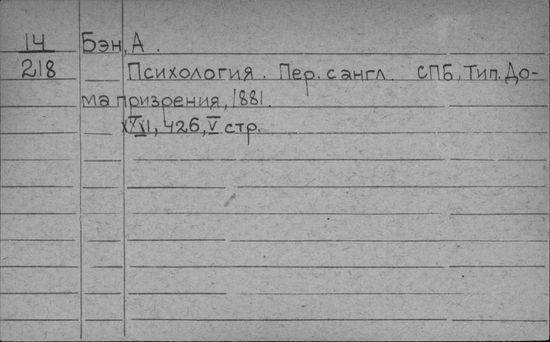 14 Бэн, А.
218 Психология. Пер. с англ. СПБ, Тип. До-
ма призрения, 1881.
426, V стр.